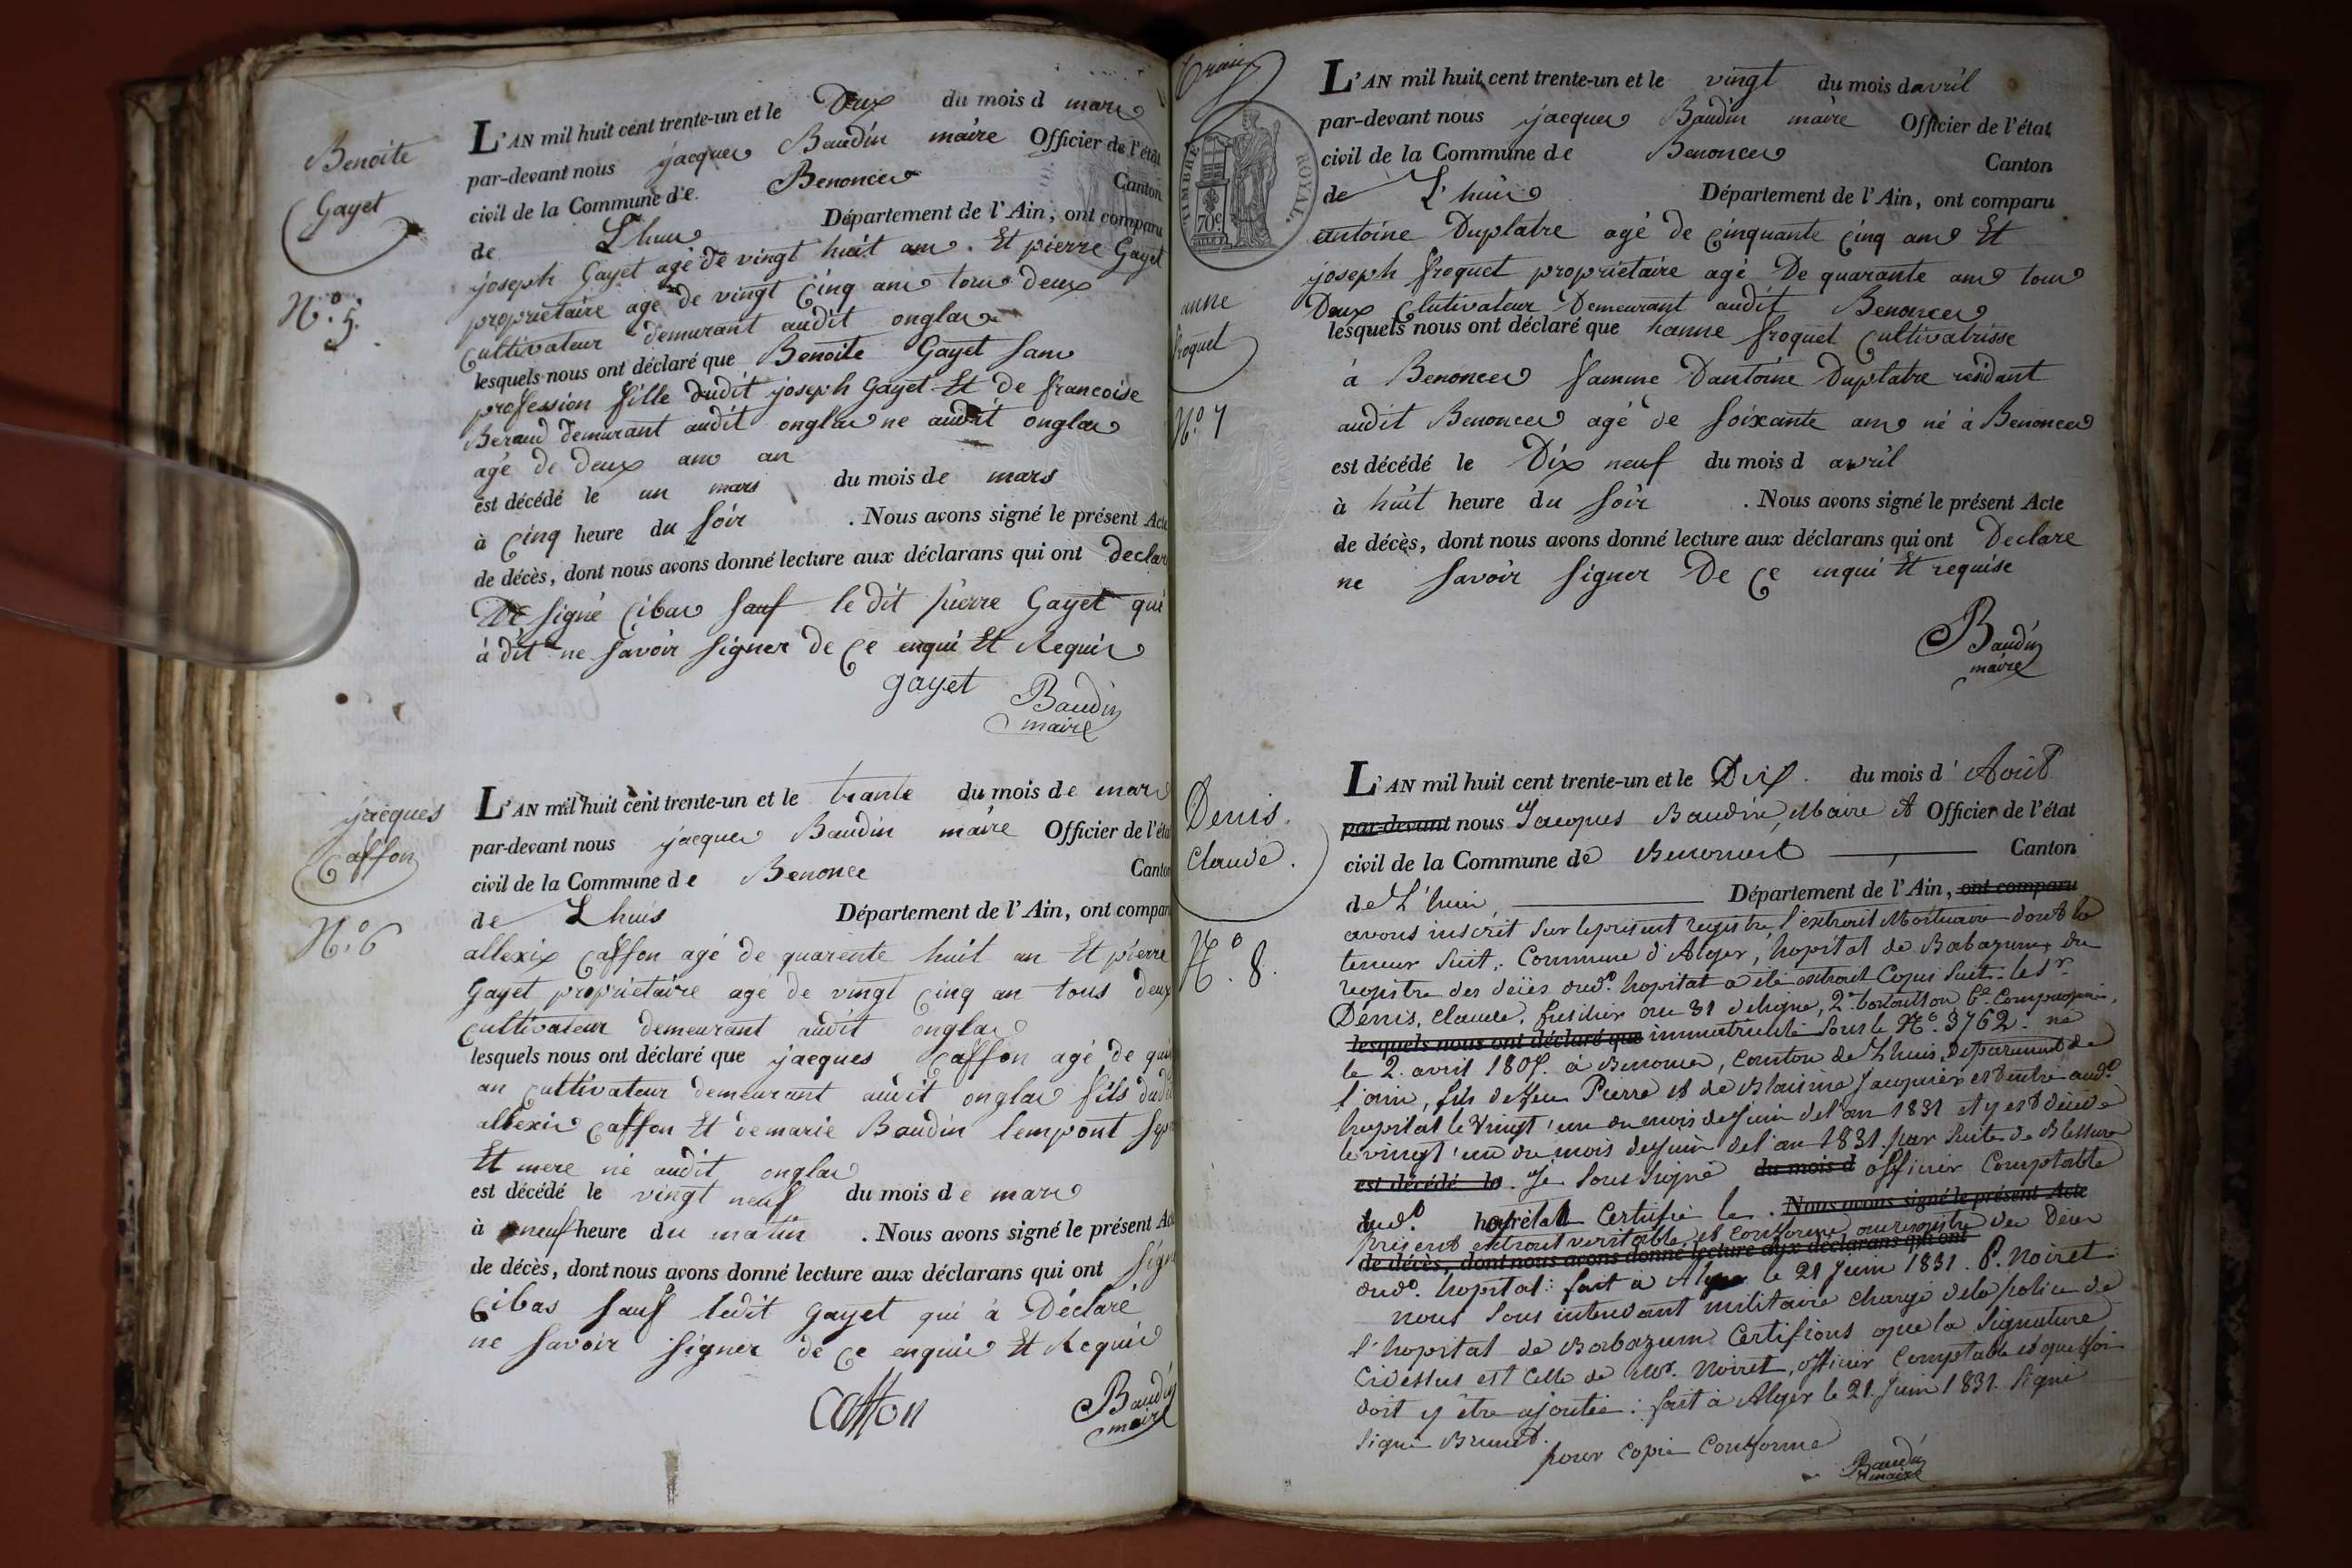 Benoite
Gayet
N.º 5.
L'AN mil huit cent trente-un et le Deux du mois d mars
par-devant nous jacques Baudin maire Officier de l'état
civil de la Commune de Benonces Canton
de Lhuis Département de l'Ain, ont comparu
joseph Gayet agé de vingt huit ans. Et pierre Gayet
proprietaire age de vingt cinq ans tous deux
cultivateur demurant audit onglas
lesquels nous ont déclaré que Benoite Gayet sans
profession fille dudit joseph Gayet Et de francoise
Beraud demurant audit onglas ne audit onglas
agé de deux ans an
est décédé le un mars du mois de mars
à cinq heure du soir . Nous avons signé le présent Acte
de décès, dont nous avons donné lecture aux déclarans qui ont declar
De signé cibas sauf le dit pierre Gayet qui
à dit ne savoir signer de ce enqui Et Requis
gayet Baudin
maire
jacques
Caffon
N.º 6
L'AN mil huit cent trente-un et le trante du mois de mars
par-devant nous jacques Baudin maire Officier de l'état
civil de la Commune de Benonce Canton
de Lhuis Département de l'Ain, ont comparu
allexix Caffon agé de quarente huit an Et pierre
Gayet proprietaire age de vingt cinq an tous deux
cultivateur demeurant audit onglas
lesquels nous ont déclaré que jacques Caffon agé de
an cultivateur demeurant audit onglas fils dudit
allexis Caffon Et de marie Baudin
Et mere né audit onglas
est décédé le vingt neuf du mois de mars
à neuf heure du matin . Nous avons signé le présent Acte
de décès, dont nous avons donné lecture aux déclarans qui ont signé
cibas sauf ledit gayet qui à Déclaré
ne savoir signer de ce enquis Et Requis
Caffon Baudin
maire
TIMBRE ROYAL.
70 c.
anne
froquet
N.º 7
L'AN mil huit cent trente-un et le vingt du mois davril
par-devant nous jacques Baudin maire Officier de l'état
civil de la Commune de Benonces Canton
de L'huis Département de l'Ain, ont comparu
antoine Duplatre agé de cinquante cinq ans Et
joseph froquet proprietaire agé De quarante ans tous
Deux Clutivateur Demeurant audit Benonces
lesquels nous ont déclaré que hanne froquet cultivatrisse
à Benonces famme Dantoine Duplatre residant
audit Benonces agé de soixante ans né à Benonces
est décédé le Dix neuf du mois d avril
à huit heure du soir . Nous avons signé le présent Acte
de décès, dont nous avons donné lecture aux déclarans qui ont Declare
ne savoir signer De ce enqui Et requise
Baudin
maire
Denis.
Claude.
N.º 8.
L'AN mil huit cent trente-un et le Dix. du mois d'Août
par-devant nous Jacques Baudin, Maire et Officier de l'état
civil de la Commune de Benonces Canton
de L'huis, Département de l'Ain, ont comparu
avons inscrit sur le present registre, l'extrait Mortuaire dont la
teneur suit: Commune d'Alger, hopital de Babazum, du
registre des décès dud. hopital a été extrait Ce qui suit: le Sr.
Denis, Claude, fusilier au 31 de ligne, 2e bataillon 6e Compagnie,
lesquels nous ont déclaré que immatriculé sous le Nº. 3762. né
le 2. avril 1807. à Benonce, canton de Lhuis, Departement de
l'ain, fils de feu Pierre et de Blaisine Jacquier est entré aud.
hopital le Vingt un du mois de Juin de l'an 1831 et y est décédé
le vingt un du mois de Juin de l'an 1831. par suite de Blessure
est décédé le. Je sous signé du mois d officier Comptable
dud. hopital Certifie le . Nous avons signé le présent Acte
présent extrait veritable et conforme au registre des Décès
de décès, dont nous avons donné lecture aux déclarans qui ont
dud. hopital: fait a Alger le 21 Juin 1831. P. Noiret
nous sous intendant militaire chargé de la police de
l'hopital de Babazum Certifions que la signature
Cidessus est Celle de Mr. Noiret, officier Comptable et que foi
doit y être ajoutée: fait à Alger le 21. Juin 1831. signé
signé Brunet.
pour Copie Conforme
Baudin
maire